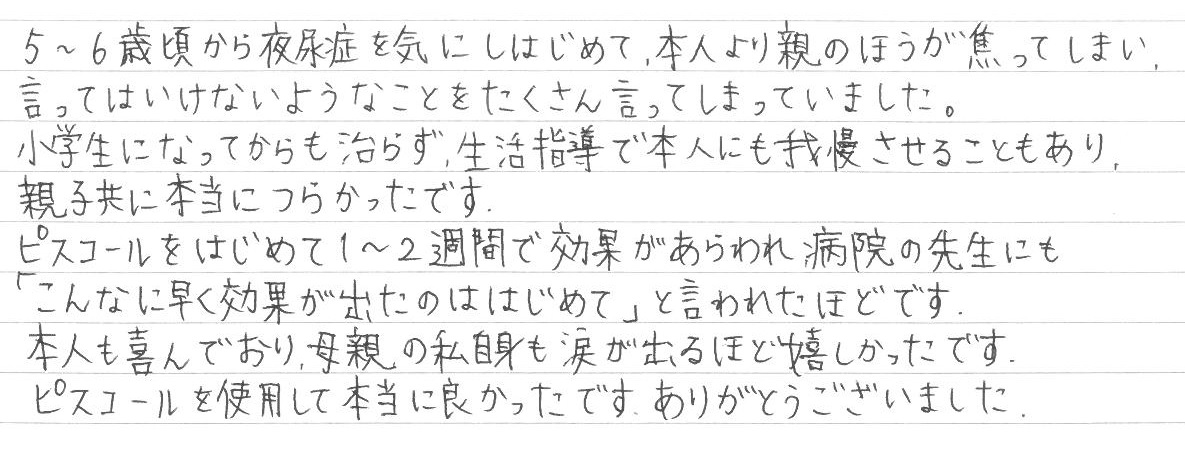 5～6歳頃から夜尿症を気にしはじめて、本人より親のほうが焦ってしまい、
言ってはいけないようなことをたくさん言ってしまっていました。
小学生になってからも治らず、生活指導で本人にも我慢させることもあり、
親子共に本当につらかったです.
ピスコールをはじめて1～2週間で効果があらわれ、病院の先生にも
「こんなに早く効果が出たのははじめて」と言われたほどです.
本人も喜んでおり、母親の私自身も涙が出るほど嬉しかったです.
ピスコールを使用して本当に良かったです.ありがとうございました.